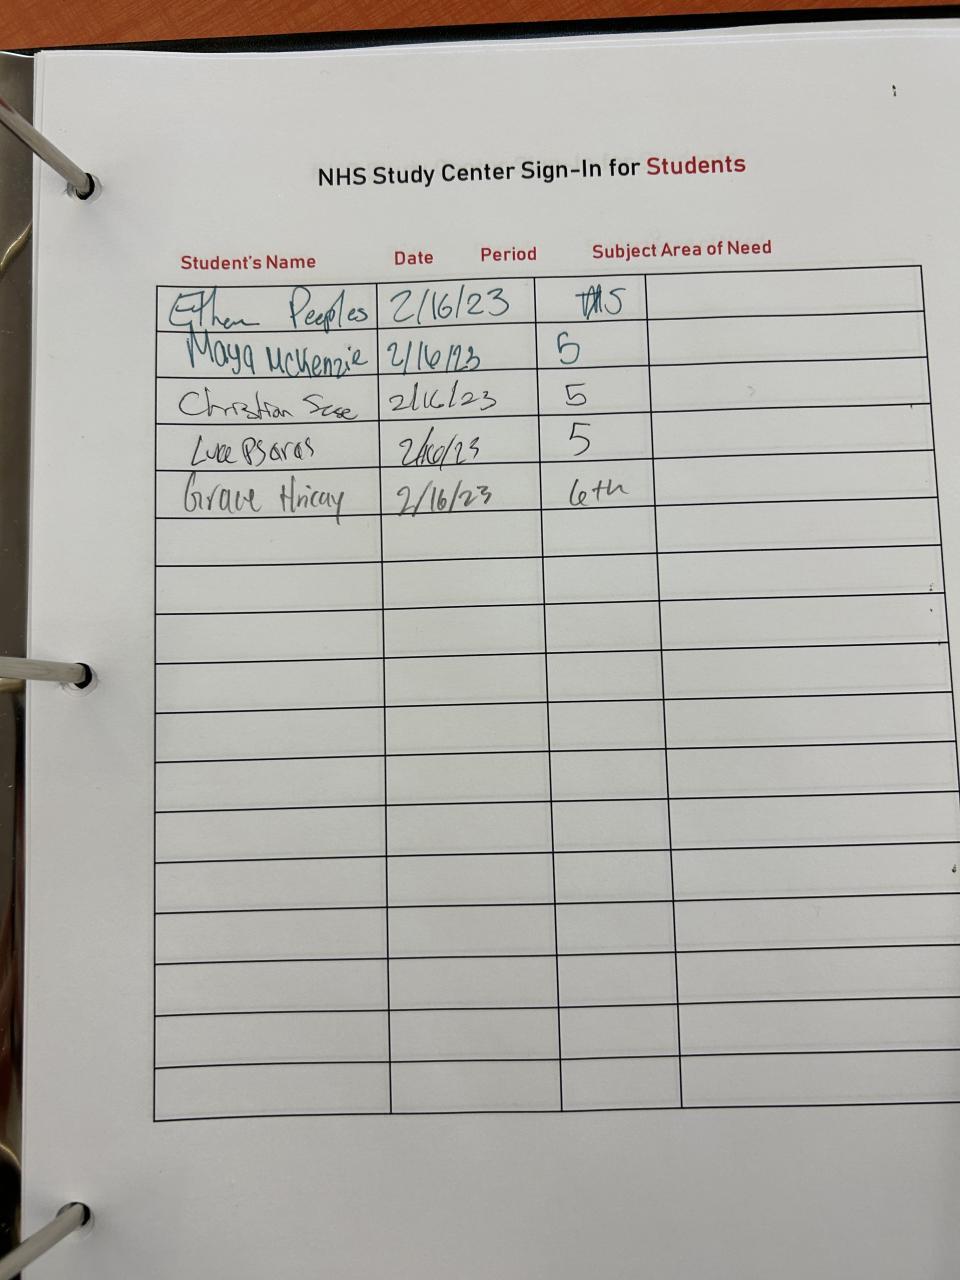 NHS Study Center Sign-In for Students
Student's Name Date Period Subject Area of Need
Ethan Peeples 2/16/23 5
Maya McKenzie 2/16/23 5
Christian 2/16/23 5
Luce Psaras 2/16/23 5
Grace Hricay 2/16/23 6th